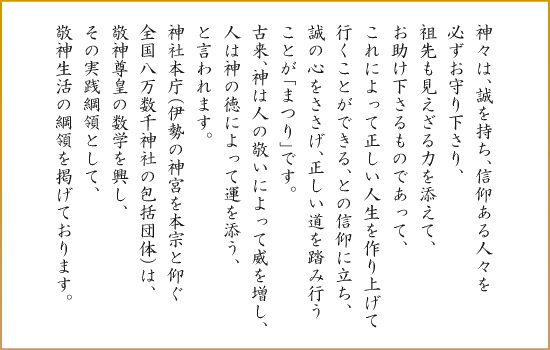 神々は、誠を持ち、信仰ある人々を
必ずお守り下さり、
祖先も見えざる力を添えて、
お助け下さるものであって、
これによって正しい人生を作り上げて
行くことができる、との信仰に立ち、
誠の心をささげ、正しい道を踏み行う
ことが「まつり」です。
古来、神は人の敬いによって威を増し、
人は神の徳によって運を添う、
と言われます。
神社本庁（伊勢の神宮を本宗と仰ぐ
全国八万数千神社の包括団体）は、
敬神尊皇の数学を興し、
その実践綱領として、
敬神生活の綱領を掲げております。